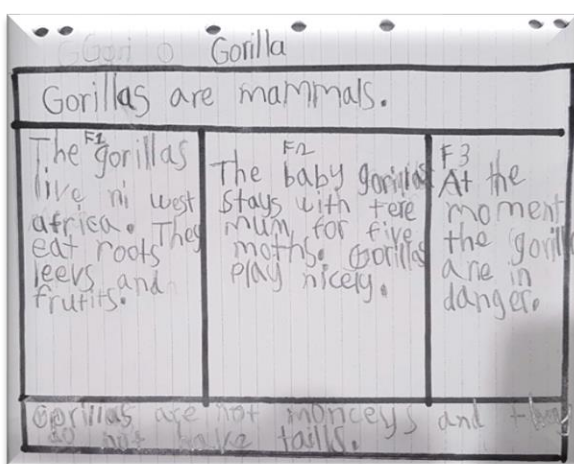 Gorilla
Gorillas are mammals.
F1
The gorillas
live ni west
africa. They
eat roots
leevs and
frutits.
F2
The baby gorillas
stays with tere
mum for five
moths. Gorillas
play nicely.
F3
At the
moment
the gorilla
are in
danger.
Gorillas are not monceys and they
do not have taills.